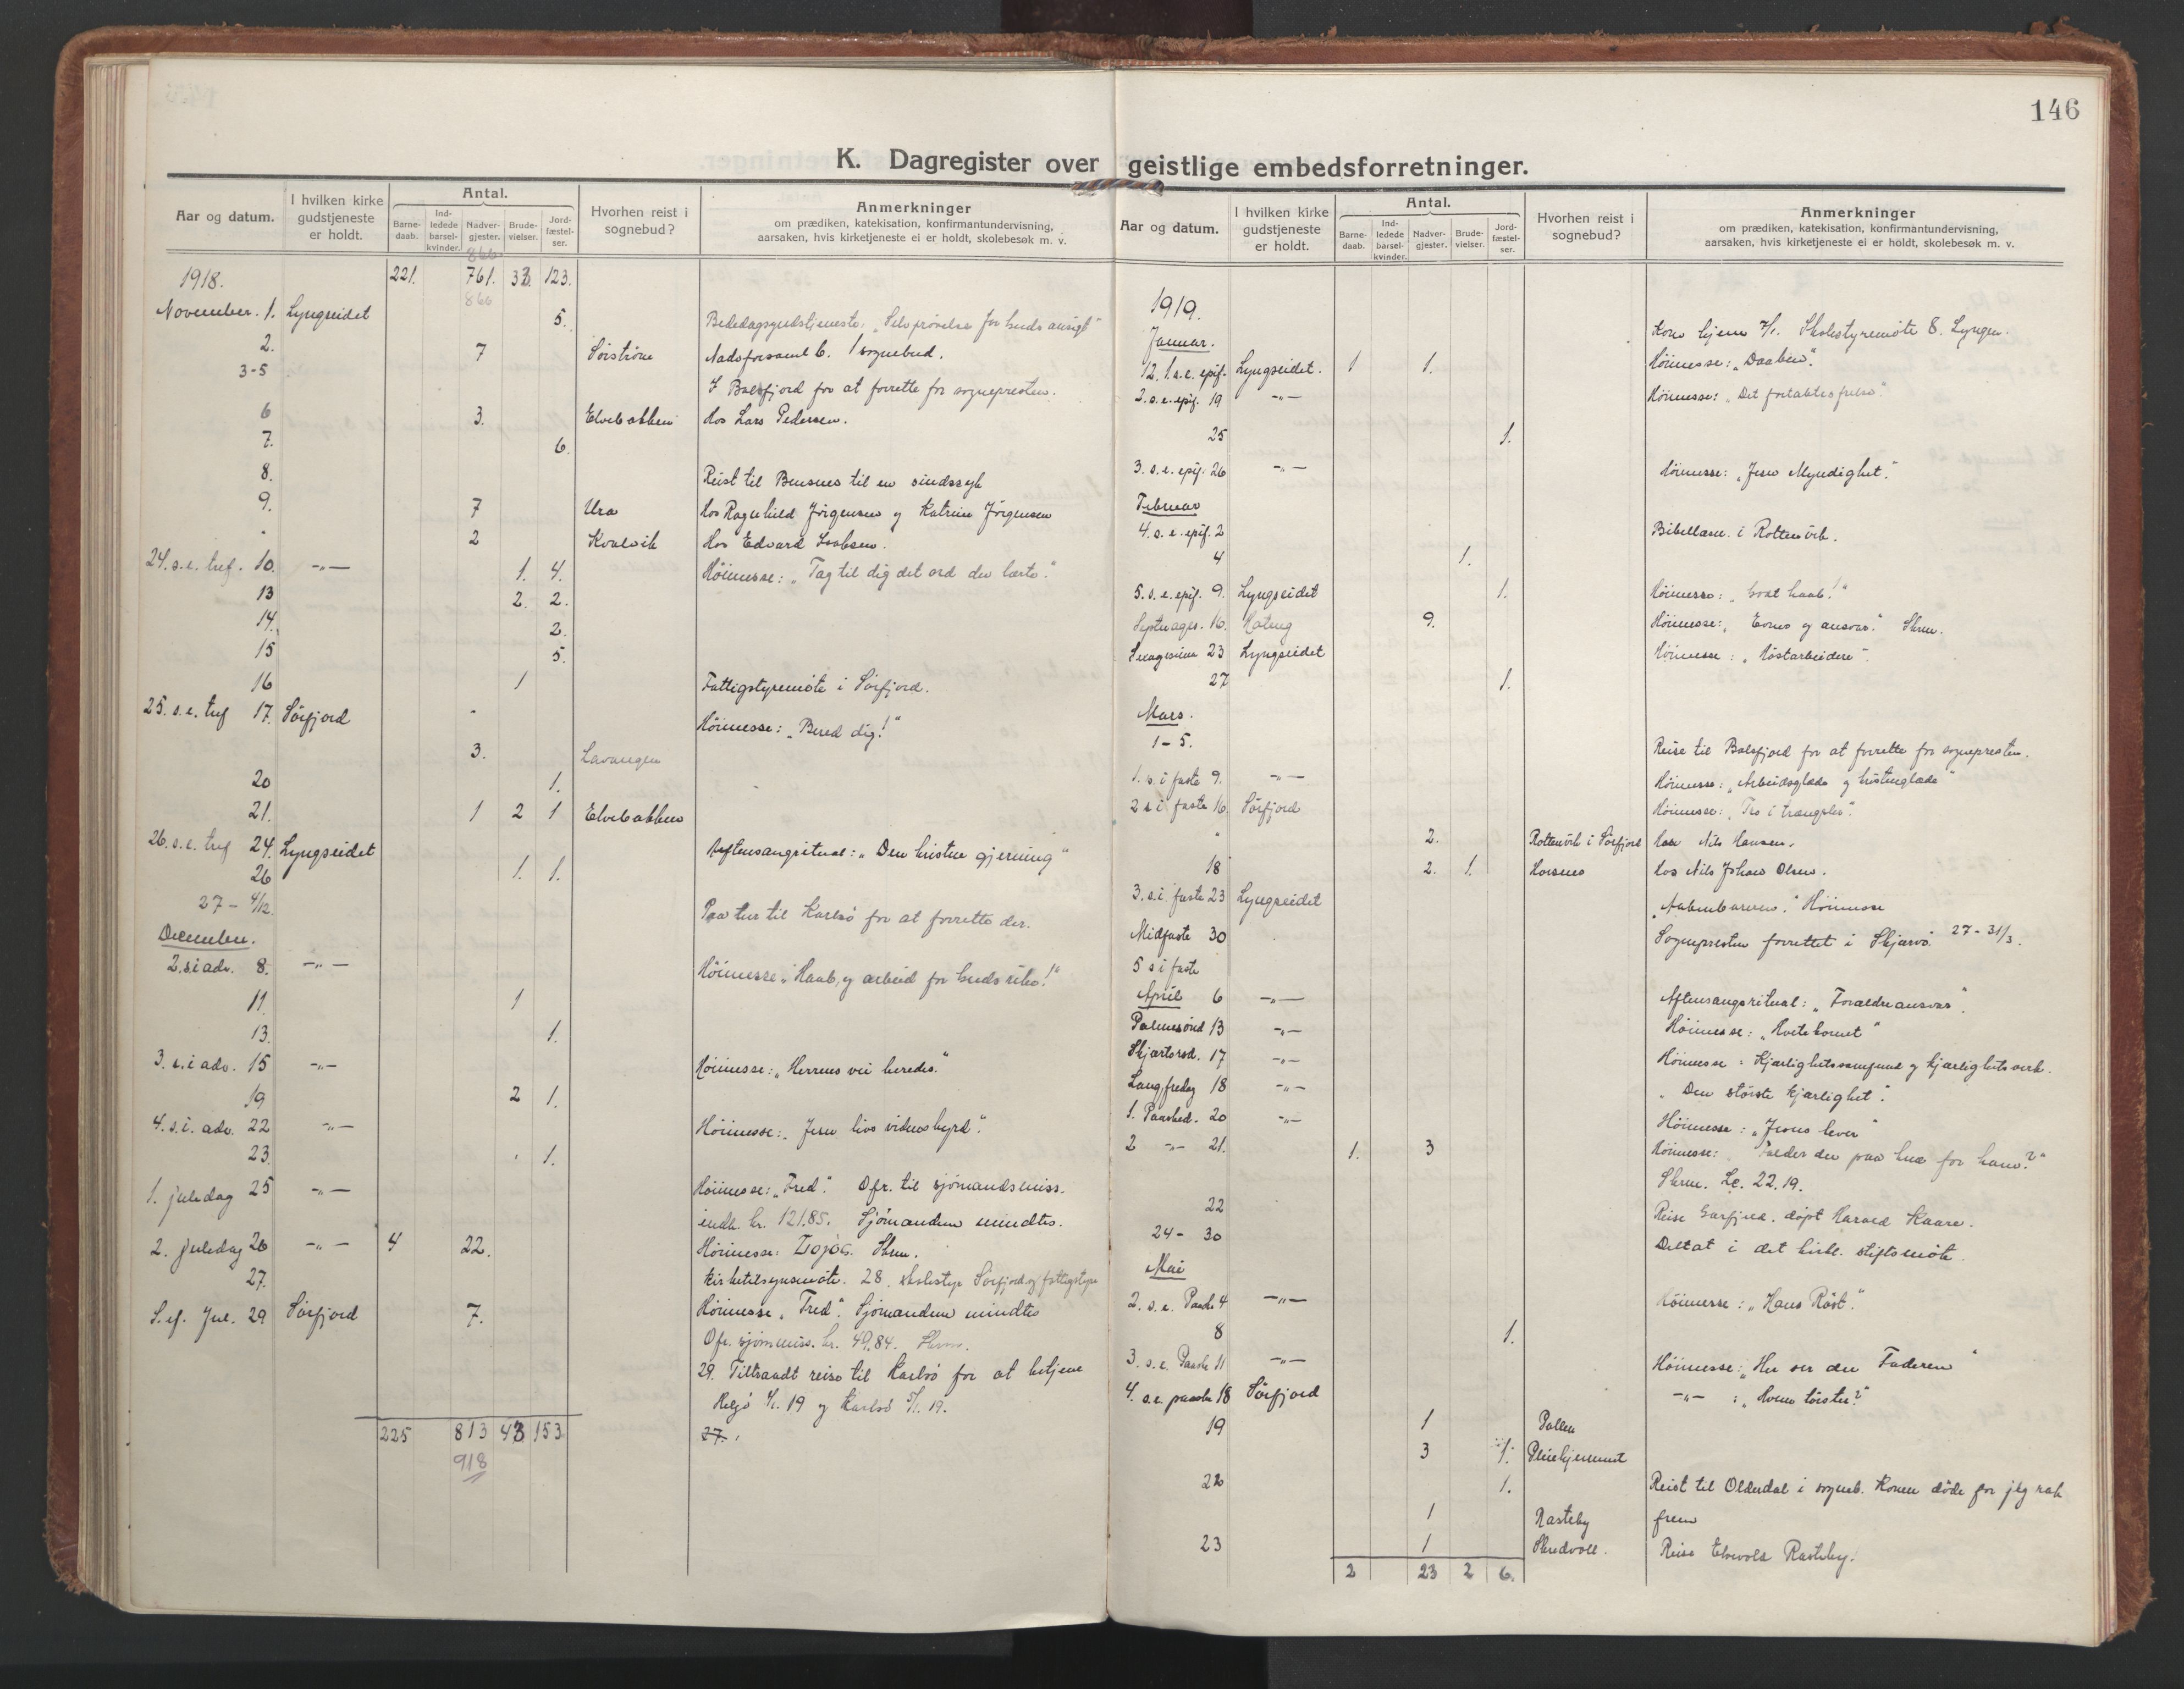 146
K. Dagregister over geistlige embedsforretninger.
Aar og datum. I hvilken kirke gudstjeneste er holdt. Antal. Barnedaab. Indledede barselkvinder. Nadvergjester. Brudevielser. Jordfæstelser. Hvorhen reist i sognebud? Anmerkninger om prædiken, katekisation, konfirmantundervisning, aarsaken, hvis kirketjeneste ei er holdt, skolebesøk m. v.
866
1918. 221. 761. 33. 123.
866
November. 1. Lyngseidet 5. Bededagsgudstjeneste: "Selvprøvelse for Guds ansigt"
2. 7 Sørstrøm Nadsforsaml 6. 1 sognebud.
3-5 I Balsfjord for at forrette for sognepresten.
6 3. Elvebakken Hos Lars Pedersen.
7. 6.
8. Reist til Bensnes til en sindssyk
9. 7 Ura Hos Ragnhild Jørgensen og Katrine Jørgensen
" 2 Kvalvik Hos Edvard
24. s. e. tref. 10. -"- 1. 4. Höimesse: "Tag til dig det ord du lærte."
13 2. 2.
14. 2.
15 5.
16 1 Fattigstyremöte i Sörfjord.
25. s. e. tref 17. Sörfjord - Höimesse: "Bered dig!"
3. Lavangen
20 1.
21. 1 2 1 Elvebakken
26. s. e. tref 24. Lyngseidet Aftensangritual: "Den kristne gjerning"
26 1. 1.
27 - 4/12. Paa tur til Karlsö for at forrette der.
December.
2. s. i adv. 8. -"- Höimesse "Haab, og arbeid for Guds rike!"
11. 1
13. 1.
3. s. i adv. 15 -"- Höimesse: "Herrens vei beredes."
19 2 1.
4. s. i. adv. 22 -"- Höimesse: "Jesu livs vidnesbyrd".
23. 1.
1. juledag 25 -"- Höimesse: "Fred". Ofr. til sjömandsmiss.
indk. kr. 121.85. Sjömanden mindtes.
2. juledag 26 -"- 4 22. Höimesse: Skrm.
27. Kirketilsynsmöte. 28. skolestyr Sörfjord og fattigstyre
S. ef. Jul. 29 Sörfjord 7. Höimesse "Fred". Sjömanden mindtes
Ofr. sjömmiss. kr. 49.84. Skrm.
29. Tiltraadt reise til Karlsö for at betjene
Helgö 1/1. 19 og Karlsö 5/1. 19.
225 813 43 153 27.
918
Aar og datum. I hvilken kirke gudstjeneste er holdt. Antal. Barnedaab. Indledede barselkvinder. Nadvergjester. Brudevielser. Jordfæstelser. Hvorhen reist i sognebud? Anmerkninger om prædiken, katekisation, konfirmantundervisning, aarsaken, hvis kirketjeneste ei er holdt, skolebesøk m. v.
1919.
Kom hjem 7/1. Skolestyremöte 8. Lyngen.
Januar.
12. 1. s. e. epif. Lyngseidet. 1 1. Höimesse: "Daaben".
2. s. e. epif. 19 -"- Höimesse: "Det fortabtes frelse"
25 1.
3. s. e. epif. 26 -"- Höimesse: "Jesu Myndighet".
Februar
4. s. e. epif. 2 Bibellæsn. i Rottenvik.
4 1.
5. s. e. epif. 9. Lyngseidet 1. Höimesse: "Godt haab!"
Septuages. 16. Kateng 9. Höimesse: "Evner og ansvar." Skrm.
23 Lyngseidet Höimesse: "Höstarbeidere".
27 1.
Mars.
1-5. Reise til Balsfjord for at forrette for sognepresten.
1. s. i faste 9. -"- Höimesse: "Arbeidsglæde og kristenglæde"
2 s i faste 16. Sörfjord Höimesse: "Tro i trængsler".
" 2. Rottenvik i Sörfjord Hos Nils Hansen.
18 2. 1. Horsnes Hos Nils Johan Olsen.
3. s. i. faste 23 Lyngseidet "Aabenbareren". Höimesse
Midfaste 30 Sognepresten forrettet i Skjærvö. 27-31/3.
5 s i faste
April 6 -"- Aftensangsritual: "Forældreansvar".
Palmesönd 13 -"- Höimesse: "Hvetekornet"
Skjærtorsd. 17 -"- Höimesse: Kjærlighetssamfund og kjærlighetsverk.
Langfredag 18 -"- "Den störste kjærlighet".
1. Paasked. 20 -"- Höimesse: "Jesus lever"
2 -"- 21. 1. 3 Höimesse: "Falder du paa knæ for ham?"
Skrm. Lc. 22.19.
22 Reise döpt Harald Kaare.
24-30 Deltat i det kirkl. stiftsmöte.
Mai
2. s. e. Paaske 4 -"- Höimesse: "Hans Röst".
8 1.
3. s. e. Paaske 11 -"- Höimesse: "Her ser du Faderen"
4. s. e. paaske 18 Sörfjord -"- : "Hvem törster?"
19 1 Pollen
3 1. Pleiehjemmet
22 1. Reist til Olderdal i sogneb. Konen döde för jeg rak
1 Rasteby frem
23 1 Skredvoll. Reise Elvevold Rasteby.
2 23 2 6.